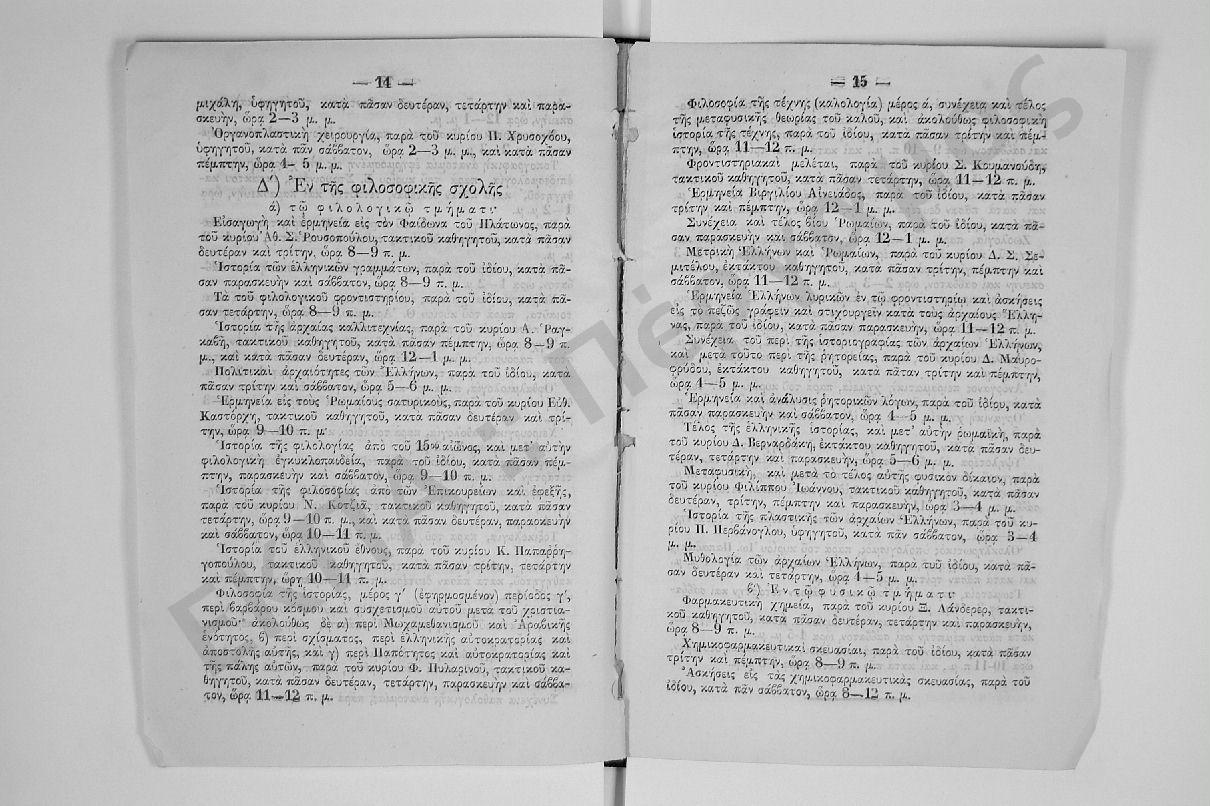 — 14 —
μιχάλη, ὑφηγητοῦ, κατὰ πᾶσαν δευτέραν, τετάρτην καὶ παρα-
σκευὴν, ὥρᾳ 2—3 μ. μ.
Ὀργανοπλαστικὴ χειρουργία, παρὰ τοῦ κυρίου Π. Χρυσοχόου,
ὑφηγητοῦ, κατὰ πᾶν σάββατον, ὥρᾳ 2—3 μ. μ., καὶ κατὰ πᾶσαν
πέμπτην, ὥρᾳ 4— 5 μ. μ.
Δ΄) Ἐν τῆς φιλοσοφικῆς σχολῆς
ά) τῷ φιλολογικῷ τμήματι·
Εἰσαγωγὴ καὶ ἑρμηνεία εἰς τὸν Φαίδωνα τοῦ Πλάτωνος, παρὰ
τοῦ κυρίου Ἀθ. Σ. Ῥουσοπούλου, τακτικοῦ καθηγητοῦ, κατὰ πᾶσαν
δευτέραν καὶ τρίτην, ὥρᾳ 8—9 π. μ.
Ἱστορία τῶν ἑλληνικῶν γραμμάτων, παρὰ τοῦ ἰδίου, κατὰ πᾶ-
σαν παρασκευὴν καὶ σάββατον, ὥρᾳ 8—9 π. μ.
Τὰ τοῦ φιλολογικοῦ φροντιστηρίου, παρὰ τοῦ ἰδίου, κατὰ πᾶ-
σαν τετάρτην, ὥρᾳ 8—9 π. μ.
Ἱστορία τῆς ἀρχαίας καλλιτεχνίας, παρὰ τοῦ κυρίου Α. Ῥαγ-
καβῆ, τακτικοῦ καθηγητοῦ, κατὰ πᾶσαν πέμπτην, ὥρᾳ 8—9 π.
μ., καὶ κατὰ πᾶσαν δευτέραν, ὥρᾳ 12—1 μ. μ.
Πολιτικαὶ ἀρχαιότητες τῶν Ἑλλήνων, παρὰ τοῦ ἰδίου, κατὰ
πᾶσαν τρίτην καὶ σάββατον, ὥρᾳ 5—6 μ. μ.
Ἑρμηνεία εἰς τοὺς Ῥωμαίους σατυρικοὺς, παρὰ τοῦ κυρίου Εὐθ.
Καστόρχη, τακτικοῦ καθηγητοῦ, κατὰ πᾶσαν δευτέραν καὶ τρί-
την, ὥρᾳ 9—10 π. μ·
Ἱστορία τῆς φιλολογίας ἀπὸ τοῦ 15ου αἰῶνος, καὶ μετ᾽ αὐτὴν
φιλολογικὴ ἐγκυκλοπαιδεία, παρὰ τοῦ ἰδίου, κατὰ πᾶσαν πέμ-
πτην, παρασκευὴν καὶ σάββατον, ὥρᾳ 9—10 π. μ.
Ἱστορία τῆς φιλοσοφίας ἀπὸ τῶν Ἐπικουρείων καὶ ἐφεξῆς,
παρὰ τοῦ κυρίου Ν. Κοτζιᾶ, τακτικοῦ καθηγητοῦ, κατὰ πᾶσαν
τετάρτην, ὥρᾳ 9—10 π. μ., καὶ κατὰ πᾶσαν δευτέραν, παρασκευὴν
καὶ σάββατον, ὥρᾳ 10—11 π. μ.
Ἱστορία τοῦ ἑλληνικοῦ ἔθνους, παρὰ τοῦ κυρίου Κ. Παπαρρη-
γοπούλου, τακτικοῦ καθηγητοῦ, κατὰ πᾶσαν τρίτην, τετάρτην
καὶ πέμπτην, ὥρη 10—11 π. μ.
Φιλοσοφία τῆς ἱστορίας, μέρος γ΄ (ἐφηρμοσμένον) περίοδος γ΄,
περὶ βαρβάρου κόσμου καὶ συσχετισμοῦ αὐτοῦ μετὰ τοῦ χριστια-
νισμοῦ· ἀκολούθως δὲ α) περὶ Μωχαμεθανισμοῦ καὶ Ἀραβικῆς
ἑνότητος, β) περὶ σχίσματος, περὶ ἑλληνικῆς αὐτοκρατορίας καὶ
ἀποστολῆς αὐτῆς, καὶ γ) περὶ Παπότητος καὶ αὐτοκρατορίας καὶ
τῆς πάλης αὐτῶν, παρὰ τοῦ κυρίου Φ. Πυλαρινοῦ, τακτικοῦ κα-
θηγητοῦ, κατὰ πᾶσαν δευτέραν, τετάρτην, παρασκευὴν καὶ σάββα-
τον, ὥρᾳ 11—12 π. μ.
— 15 —
Φιλοσοφία τῆς τέχνης (καλολογία) μέρος ά, συνέχεια καὶ τέλος
τῆς μεταφυσικῆς θεωρίας τοῦ καλοῦ, καὶ ἀκολούθως φιλοσοφικὴ
ἱστορία τῆς τέχνης, παρὰ τοῦ ἰδίου, κατὰ πᾶσαν τρίτην καὶ πέμ-
πτην, ὥρᾳ 11—12 π. μ.
Φροντιστηριακαὶ μελέται, παρὰ τοῦ κυρίου Σ. Κουμανούδη,
τακτικοῦ καθηγητοῦ, κατὰ πᾶσαν τετάρτην, ὥρᾳ 11—12 π. μ.
Ἑρμηνεία Βιργιλίου Αἰνειάδος, παρὰ τοῦ ἰδίου, κατὰ πᾶσαν
τρίτην καὶ πέμπτην, ὥρᾳ 12—1 μ. μ.
Συνέχεια καὶ τέλος βίου Ῥωμαίων, παρὰ τοῦ ἰδίου, κατὰ πᾶ-
σαν παρασκευὴν καὶ σάββατον, ὥρᾳ 12—1 μ. μ.
Μετρικὴ Ἑλλήνων καὶ Ῥωμαίων, παρὰ τοῦ κυρίου Δ. Σ. Σε-
μιτέλου, ἐκτάκτου καθηγητοῦ, κατὰ πᾶσαν τρίτην, πέμπτην καὶ
σάββατον, ὥρᾳ 11—12 π. μ.
Ἑρμηνεία Ἑλλήνων λυρικῶν ἐν τῷ φροντιστηρίῳ καὶ ἀσκήσεις
εἰς τὸ πεζῶς γράφειν καὶ στιχουργεῖν κατὰ τοὺς ἀρχαίους Ἕλλη-
νας, παρὰ τοῦ ἰδίου, κατὰ πᾶσαν παρασκευὴν, ὥρᾳ 11—12 π. μ.
Συνέχεια τοῦ περὶ τῆς ἱστοριογραφίας τῶν ἀρχαίων Ἑλλήνων,
καὶ μετὰ τοῦτο περὶ τῆς ῥητορείας, παρὰ τοῦ κυρίου Δ. Μαυρο-
φρύδου, ἐκτάκτου καθηγητοῦ, κατὰ πᾶταν τρίτην καὶ πέμπτην,
ὥρᾳ 4—5 μ. μ.
Ἑρμηνεία καὶ ἀνάλυσις ῥητορικῶν λόγων, παρὰ τοῦ ἰδίου, κατὰ
πᾶσαν παρασκευὴν καὶ σάββατον, ὥρᾳ 4—5 μ. μ.
Τέλος τῆς ἑλληνικῆς ἱστορίας, καὶ μετ᾽ αὐτὴν ῥωμαϊκὴ, παρὰ
τοῦ κυρίου Δ. Βερναρδάκη, ἐκτάκτου καθηγητοῦ, κατὰ πᾶσαν δευ-
τέραν, τετάρτην καὶ παρασκευὴν, ὥρᾳ 5—6 μ. μ.
Μεταφυσικὴ, καὶ μετὰ τὸ τέλος αὐτῆς φυσικὸν δίκαιον, παρὰ
τοῦ κυρίου Φιλίππου Ἰωάννου, τακτικοῦ καθηγητοῦ, κατὰ πᾶσαν
δευτέραν, τρίτην, πέμπτην καὶ παρασκευὴν, ὥρᾳ 3—4 μ. μ.
Ἱστορία τῆς πλαστικῆς τῶν ἀρχαίων Ἑλλήνων, παρὰ τοῦ κυ-
ρίου Π. Περβάνογλου, ὑφηγητοῦ, κατὰ πᾶν σάββατον, ὥρᾳ 3—4
μ. μ.
Μυθολογία τῶν ἀρχαίων Ἑλλήνων, παρὰ τοῦ ἰδίου, κατὰ πᾶ-
σαν δευτέραν καὶ τετάρτην, ὥρᾳ 4—5 μ. μ.
β΄) Ἐν τῷ φυσικῷ τμήματι·
Φαρμακευτικὴ χημεία, παρὰ τοῦ κυρίου Ξ. Λάνδερερ, τακτι-
κοῦ καθηγητοῦ, κατὰ πᾶσαν δευτέραν, τετάρτην καὶ παρασκευὴν,
ὥρᾳ 8—9 π. μ.
Χημικοφαρμακευτικαὶ σκευασίαι, παρὰ τοῦ ἰδίου, κατὰ πᾶσαν
τρίτην καὶ πέμπτην, ὥρᾳ 8—9 π. μ.
Ἀσκήσεις εἰς τὰς χημικοφαρμακευτικὰς σκευασίας, παρὰ τοῦ
ἰδίου, κατὰ πᾶν σάββατον, ὥρᾳ 8—12 π. μ.